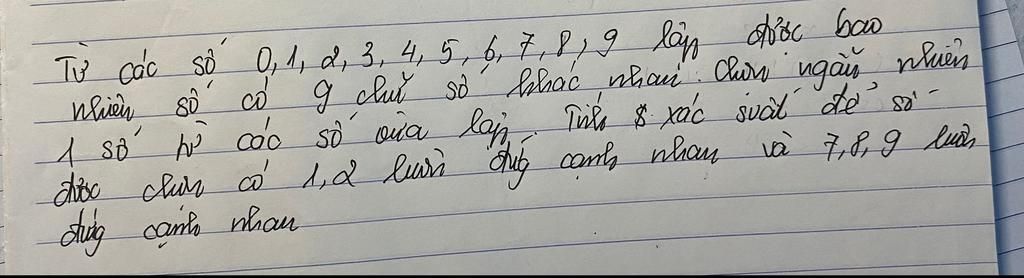 Từ các số 0, 1, 2, 3, 4, 5, 6, 7, 8, 9 lập được bao
nhiêu số có 9 chữ số khác nhau. Chọn ngẫu nhiên
1 số từ các số vừa lập. Tính xác suất để số
được chọn có 1, 2 luôn đứng cạnh nhau và 7, 8, 9 luôn
đứng cạnh nhau